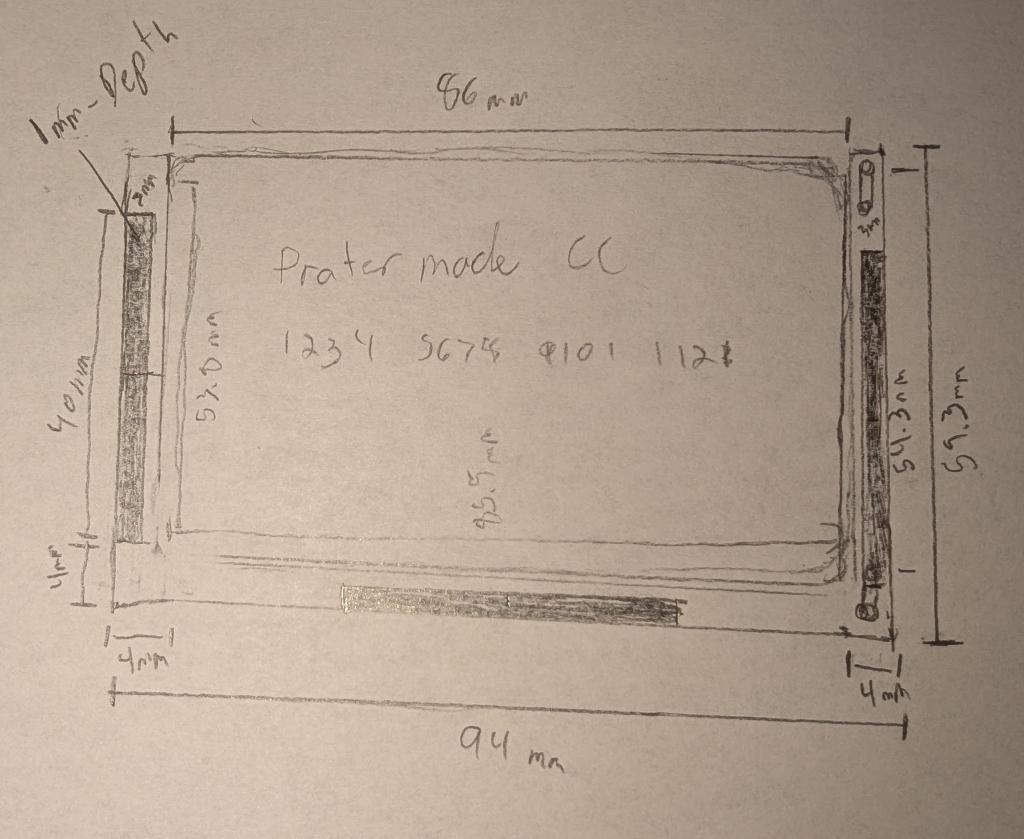 1mm-Depth
86 mm
2mm
3mm
Prater made CC
1234 5678 9101 1121
40mm
53.8 mm
85.5 mm
54.3mm
59.3mm
4mm
4mm
4mm
94 mm